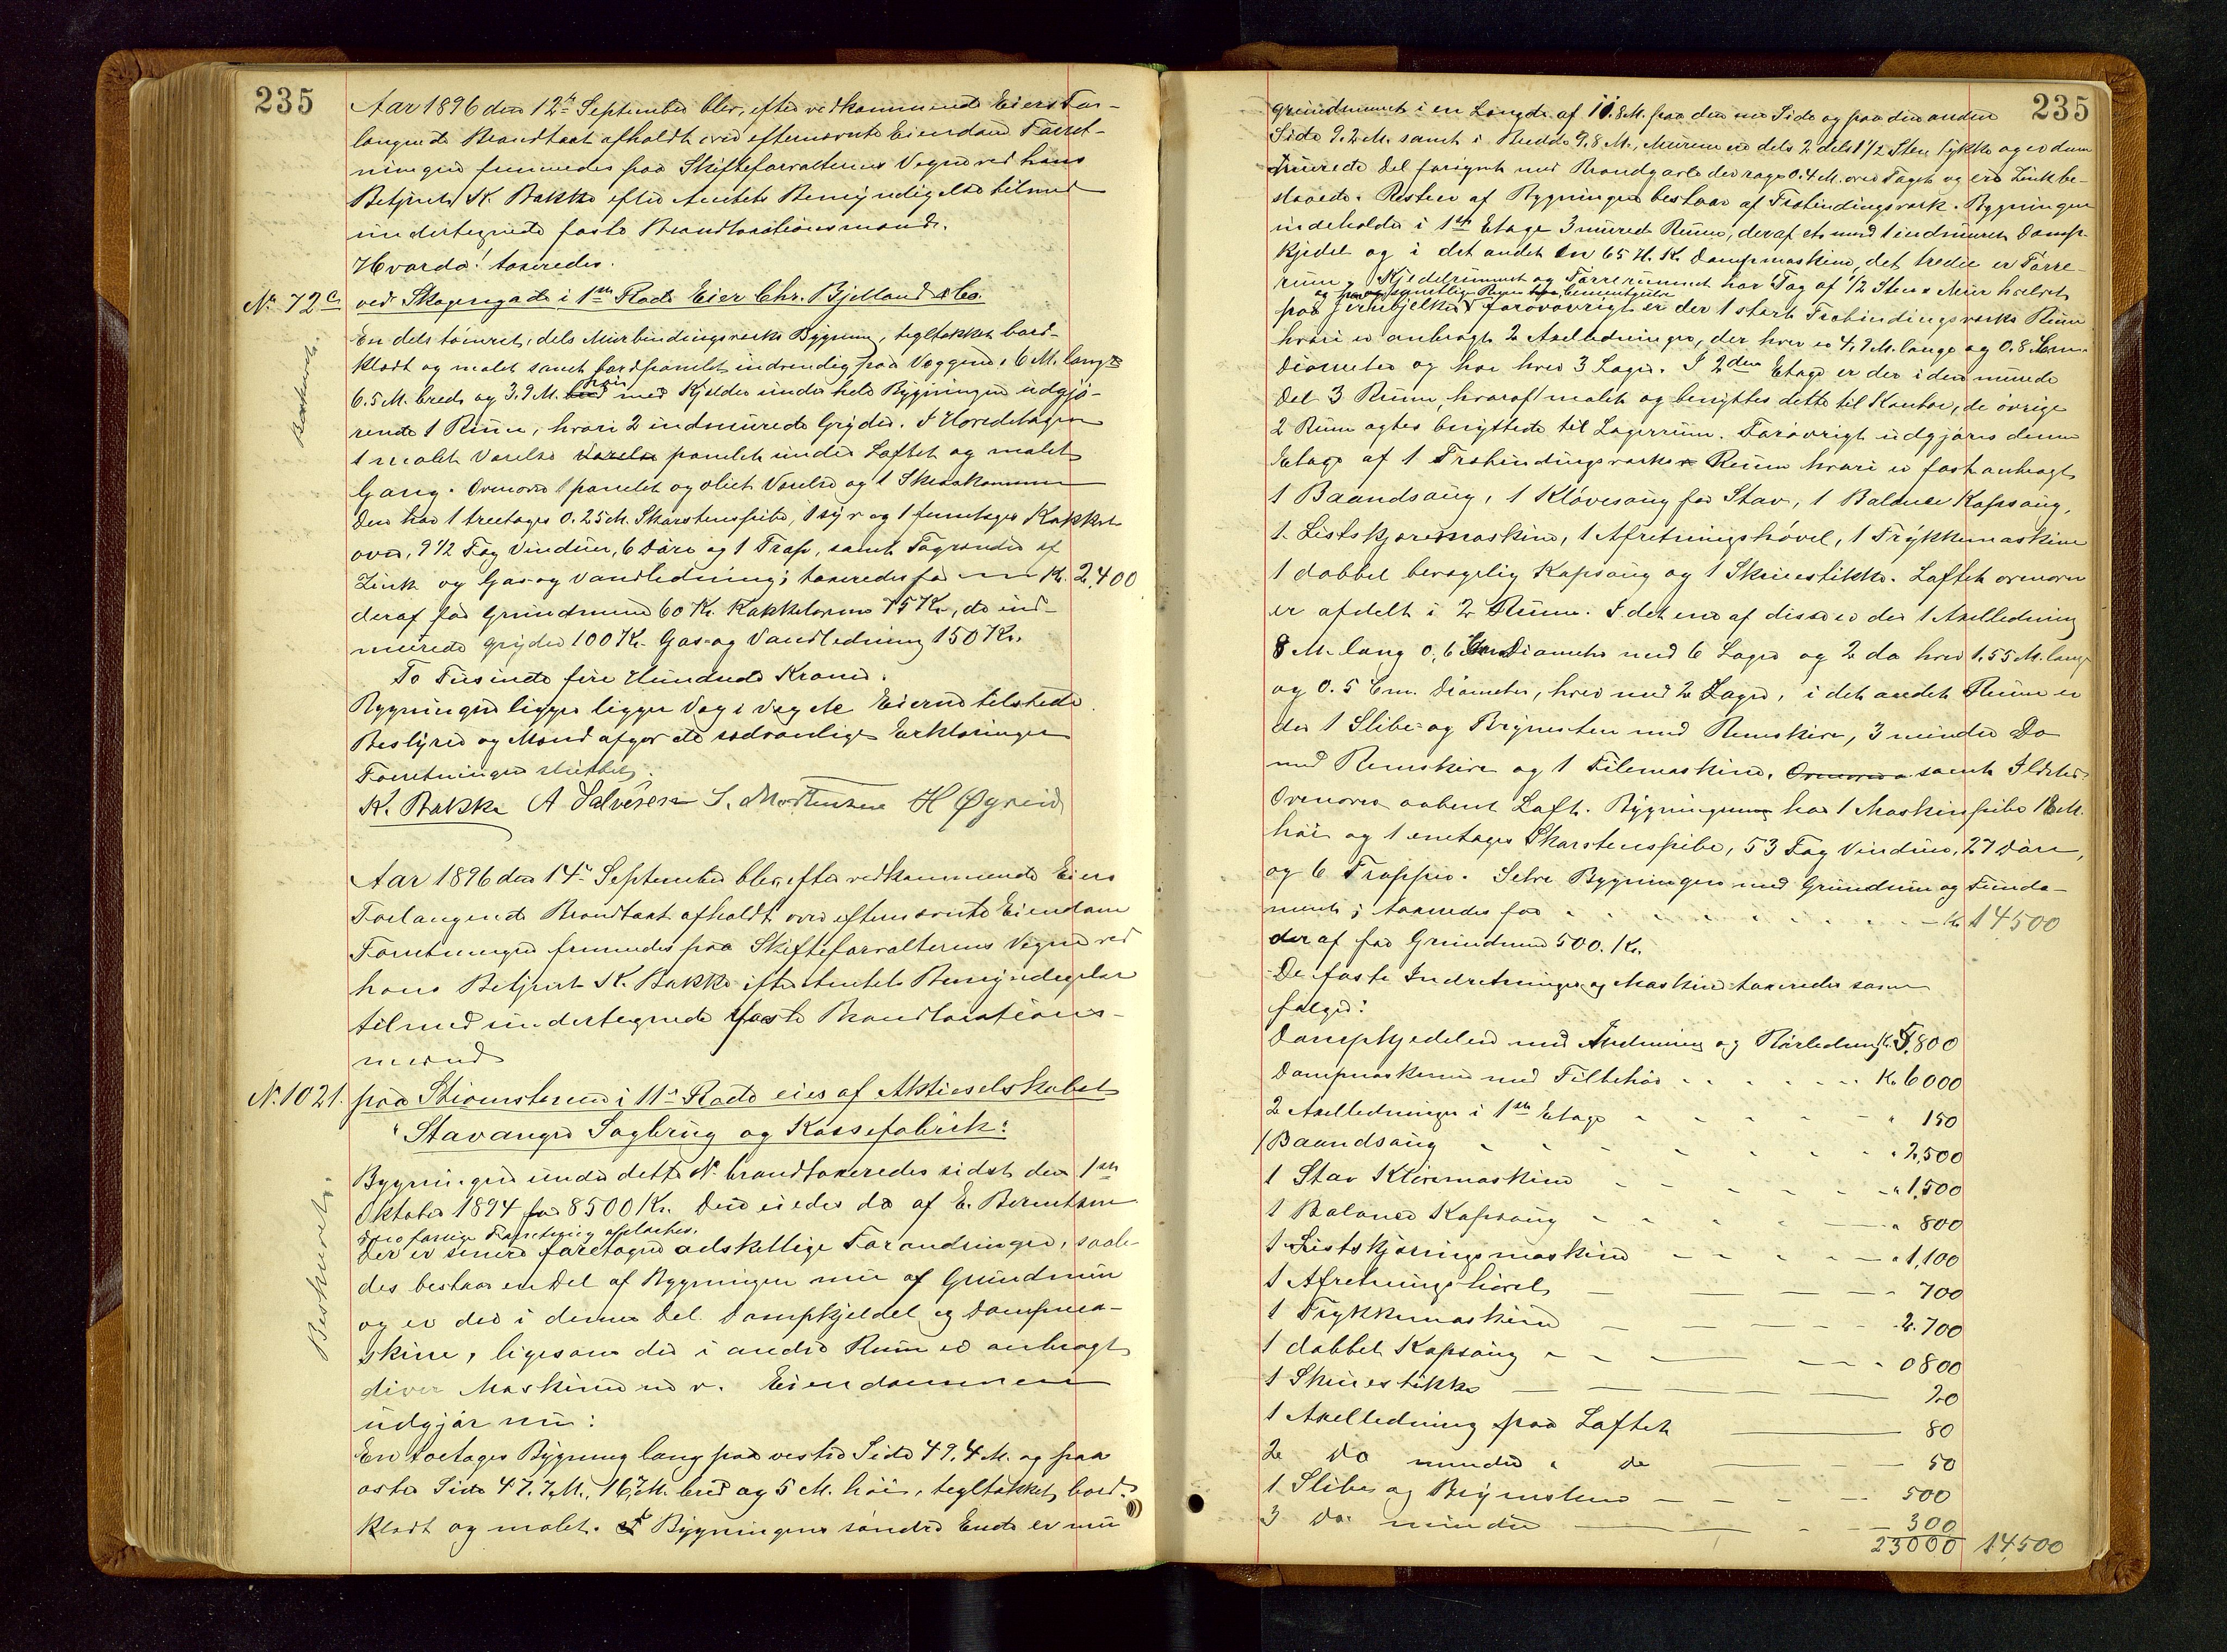 235
Aar 1896 den 12te September blev, efter vedkommende Eiers For-
langende Brandtaxt afholdt over efternævnte Eiendom Forret-
ningen fremmedes paa Skifteforvalterens Vegne ved hans
Betjent K. Bakke efter Amtets Bemyndigelse tilmed
undertegnede faste Brandtaxationsmænd.
Hvorda! taxeredes.
No. 72c ved Skagengade i 1ste Rode Eier Chr. Bjelland & Co.
En dels tömret, dels Murbindingsverks Bygning, tegltækket bord-
klædt og malet samt bordpanelet indvendig paa Væggene, 6 M. lang
6.5 M. bred og 3.9 M. höi med Kjelder under hele Bygningen udgjö-
rende 1 Rum, hvori 2 indmurede Gryder. I Hovedetagen
1 malet Værelse Værelse panelet under Loftet og malet
Gang. Ovenover 1 panelet og oliet Værelse og 1 Skraakammer
Den har 1 treetages 0.25 M. Skorstenspibe, 1 og 1 femetages Kakkel-
ovn, 9 1/2 Fag Vinduer, 6 Döre og 1 Trap, samt Tagrender af
Zink og Gas- og Vandledning; taxeredes for Kr. 2,400
deraf for Grundmur 60 Kr. Kakkelovne 75 Kr., de ind-
murede gryder 100 Kr. Gas- og Vandledning 150 Kr.
To Tusinde fire Hundrede Kroner.
Bygningen ligger ligger Væg i Væg Eierne tilstede.
Bestyrer og Mænd afgav de sædvanlige Erklæringer
Forretningen sluttet.
K. Bakke A Salvesen S. Mortensen H Øgreid
Aar 1896 den 14de September blev, efter vedkommende Eiers
Forlangende Brandtaxt afholdt over efternævnte Eiendom
Forretningen fremmedes paa Skifteforvalterens Vegne ved
hans Betjent K. Bakke efter Amtets Bemyndigelse
tilmed undertegnede faste Brandtaxations-
mænd
No. 1021. paa Strömstenen i 11te Rode eies af Aktieselskabet
"Stavanger Sagbrug og Kassefabrik:
Beskrevet.
Bygningen under dette No. brandtaxeredes sidst den 1ste
Oktober 1894 for 8500 Kr. Den eiedes da af E. Berentsen
forrige Forretning oplæstes.
Der er senere foretaget adskillige Forandringer, saale-
des bestaar en Del af Bygningen nu af Grundmur
og er der i denne Del Dampkjedel og Dampma-
skine, ligesom der i andre Rum er anbragt
diver Maskiner m. v. Eiendommen
udgjör nu:
En toetages Bygning lang paa vestre Side 49.4 M. og paa
östre Side 47.7 M., 16.7 M. bred og 5 M. höi, tegltækket, bord-
klædt og malet. I Bygningens söndre Ende er nu
235
grundmuret i en Længde af 11.8 M. paa den ene Side og paa den anden
Side 9.2 M. samt i Bredde 9.8 M., Murene er dels 2 dels 1 1/2 Sten tykke og er denne
murede Del forsynet med Brandgavle der rage 0.4 M. over Taget og ere Zinkbe-
slaaede. Resten af Bygningen bestaar af Trebindingsverk. Bygningen
indeholder i 1ste Etage 3 murede Rum, deraf et med 1 indmuret Damp-
kjedel og i det andet en 65 H. K. Dampmaskine, det tredie er Törre-
rum. Kjedelrummet og Törrerummet har Tag af 1/2 Stens Mur hvælvet
og samtlige Rum Cementgulve
paa Jernbjelker forövrigt er der 1 stort Trebindingsverks Rum
hvori er anbragt 2 Axelledninger, der hver er 4,9 M. lange og 0.8 Cm.
Diameter og har hver 3 Lager. I 2den Etage er der i den murede
Del 3 Rum, hvoraf 1 malet og benyttes dette til Kontor, de övrige
2 Rum agtes benyttede til Lagerrum. Forövrigt udgjöres denne
Etage af 1 Trebindingsverks Rum hvori er fast anbragt
1 Baandsaug, 1 Klövesaug for Stav, 1 Balance Kapsaug,
1 Listskjæremaskine, 1 Afretningshövel, 1 Trykkemaskine
1 dobbel bevægelig Kapsaug og 1 Skruestikke. Loftet ovenover
er afdelt i 2 Rum. I det ene af disse er der 1 Axelledning
8 M. lang 0,6 Cm Diameter med 6 Lager og 2 do hver 1,55 M. lange
og 0.5 Cm. Diameter, hver med 2 Lager, i det andet Rum er
der 1 Slibe- og Brynesten med Remskive, 3 mindre Do
med Remskive og 1 Filemaskine. Ovenover samt Ildsted
Ovenover aabent Loft. Bygningen har 1 Maskinpibe 18 M.
höi og 1 enetages Skorstenspibe, 53 Fag Vinduer, 27 Döre,
og 6 Trapper. Selve Bygningen med Grundmur og Funda-
ment; taxeredes for Kr 14500
deraf for Grundmur 500. Kr.
De faste Indretninger og Maskiner taxeredes som
fölger:
Dampkjedelen med Indmuring og Rörledning Kr. 5,800
Dampmaskinen med Tilbehör Kr. 6000
2 Axelledninger i 1ste Etage " 150
1 Baandsaug " 2,500
1 Stav Klövemaskine " 1,500
1 Balance Kapsaug " 800
1 Listskjæringsmaskine " 1,100
1 Afretningshövel " 700
1 Trykkemaskine 2.700
1 dobbelt Kapsaug 0800
1 Skruestikke 20
1 Axelledning paa Loftet 80
2 do mindre " do 50
1 Slibe og Brynesten 500
3 do mindre 300
23000 14,500